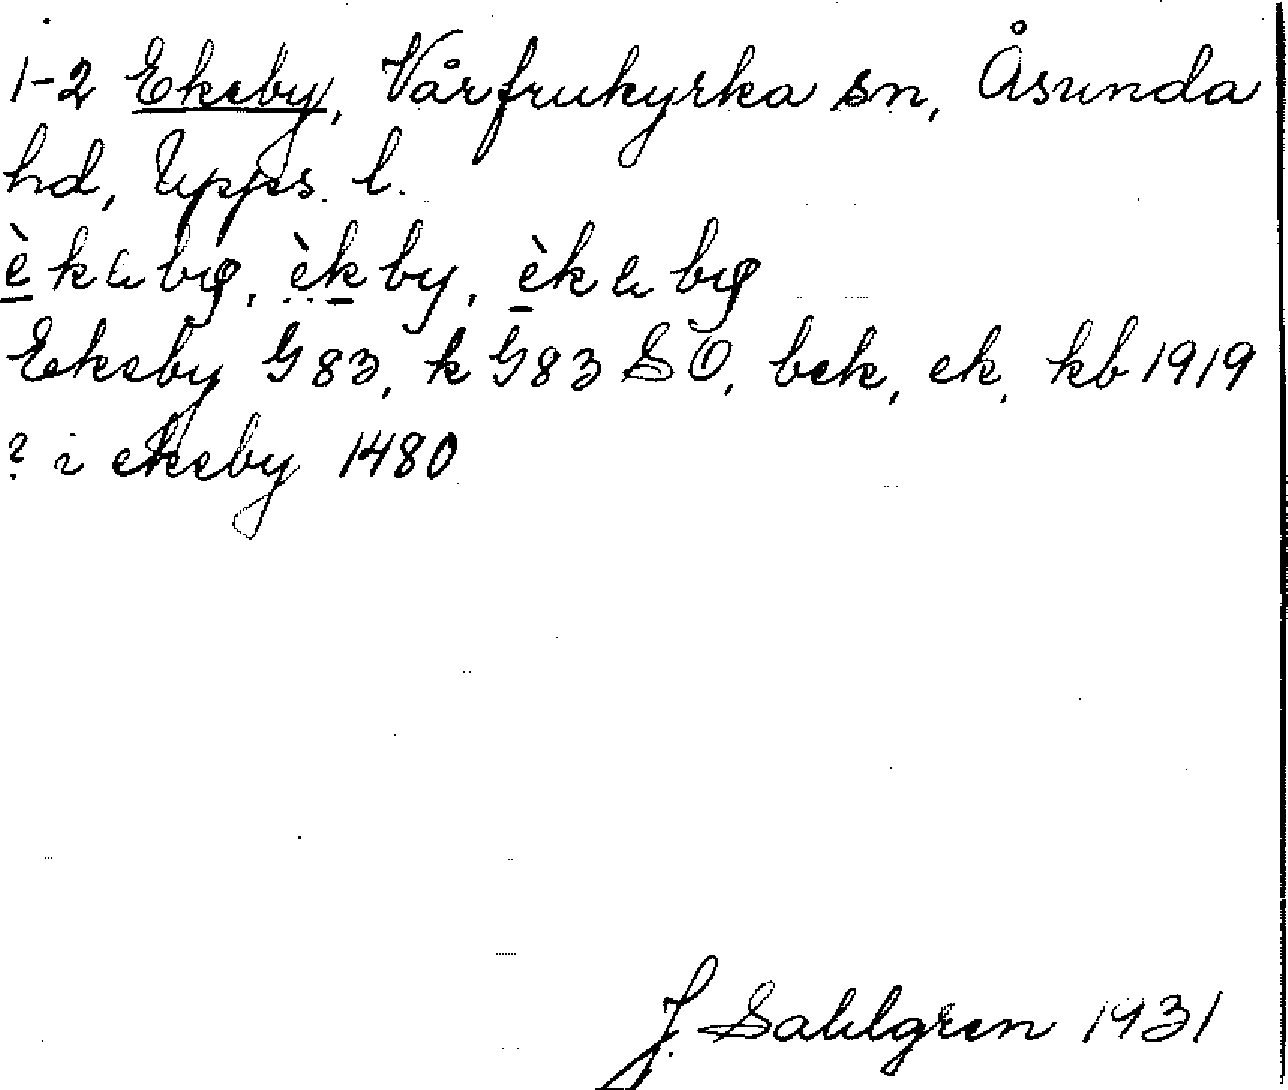 1-2 Ekeby, Vårfrukyrka sn, Åsunda
hd, Upps. l.
by, èkby, by
Ekeby G 83, k G 83 SO, bek, ek, kb 1919
? i ekeby 1480
J. Sahlgren 1931